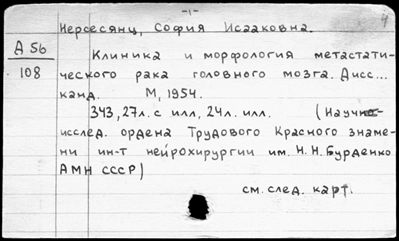 -1-
4
Нерсесянц, София Исааковна.
А 56
108
Клиника и морфология метастати-
ческого рака головного мозга. Дисс...
канд. М, 1954.
343, 27л. с илл, 24л. илл. (Научно-
исслед. ордена Трудового Красного знаме-
ни ин-т нейрохирургии им. Н.Н. Бурденко
АМН СССР)
см. след. карт.